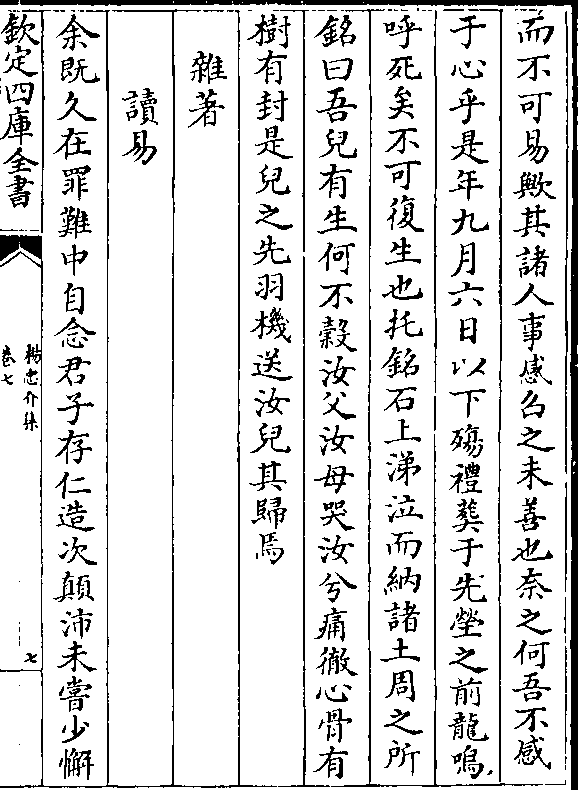 而不可易歟其諸人事感召之未善也奈之何吾不感
于心乎是年九月六日以下殤禮葬于先塋之前龍鳴
呼死矣不可復生也托銘石上涕泣而納諸土周之所
銘曰吾兒有生何不穀汝父汝母哭汝兮痛徹心骨有
樹有封是兒之先羽機送汝兒其歸焉
雜著
讀易
余既久在罪難中自念君子存仁造次顛沛未嘗少懈
欽定四庫全書
楊忠介集
卷七
七